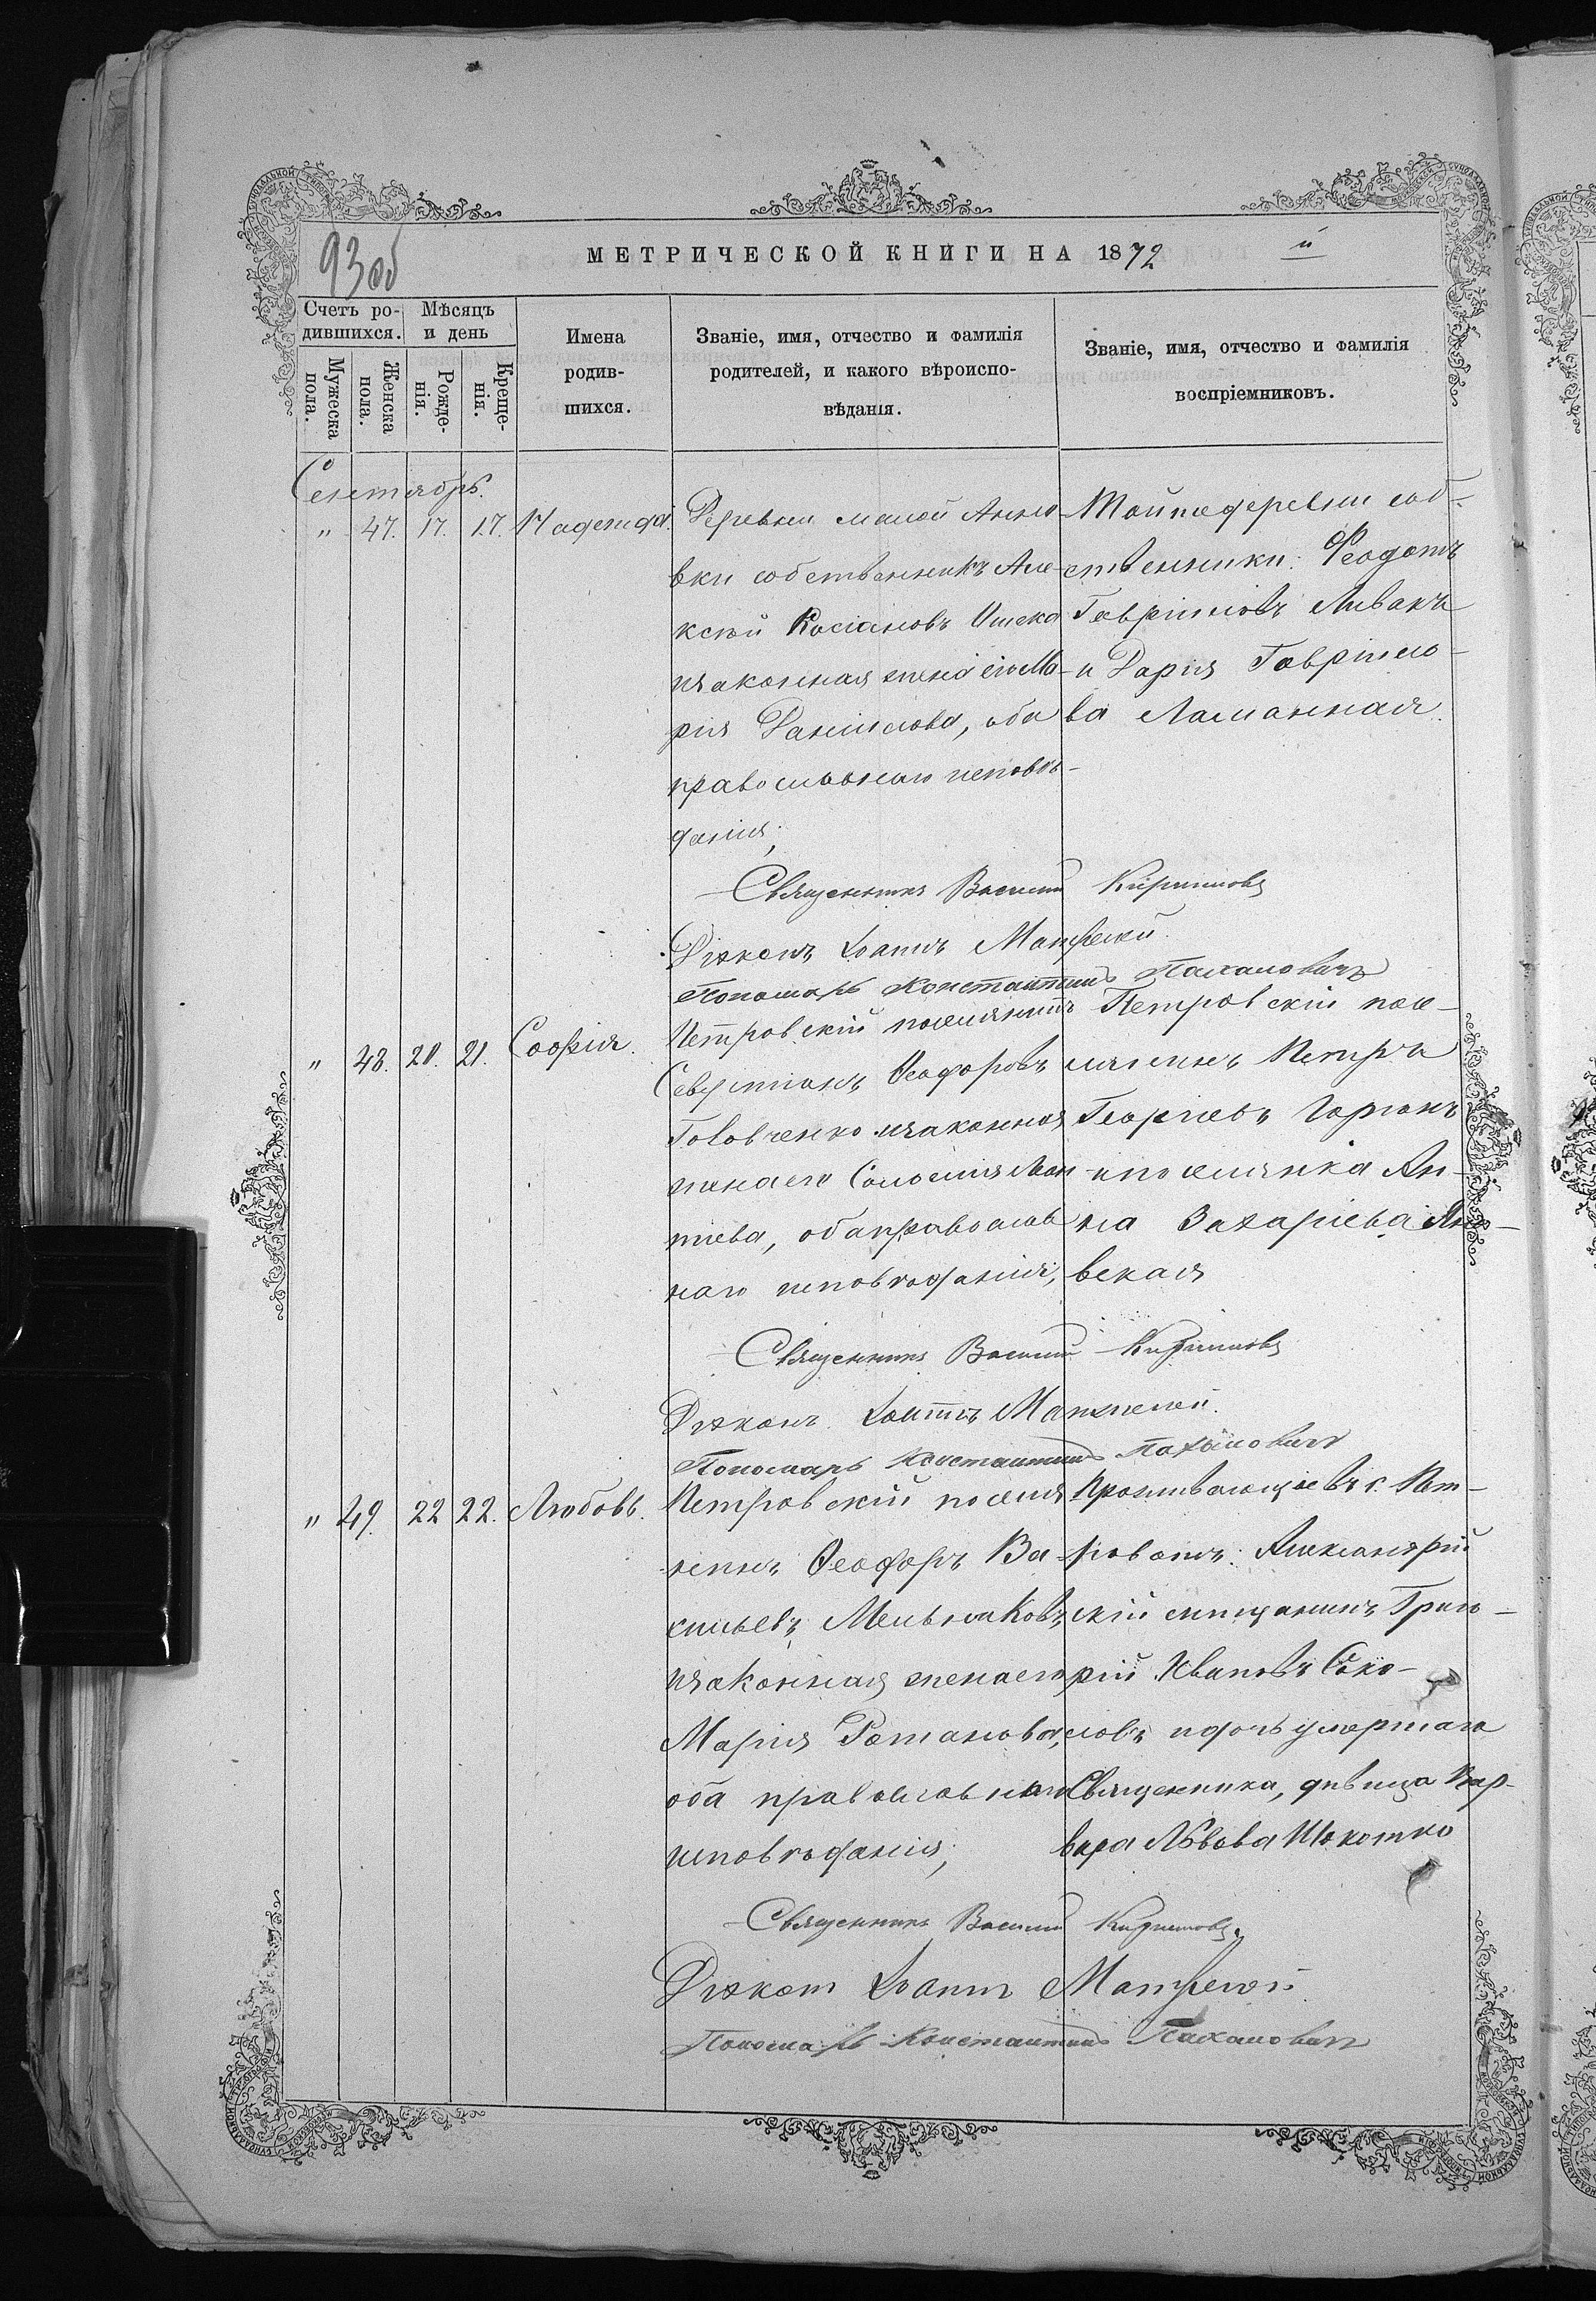 93 об
МЕТРИЧЕСКОЙ КНИГИ НА 1872 й
Счетъ ро-
дившихся.
Мужеска
пола.
Женска
пола.
Мѣсяцъ
и день
Рожде-
нія.
Креще-
нія.
Имена
родив-
шихся.
Званіе, имя, отчество и фамилія
родителей, и какого вѣроиспо-
вѣданія.
Званіе, имя, отчество и фамилія
воспріемниковъ.
Сентябрь.
" 47. 17. 17. Надежда.
Деревни малой Анно
вки собственникъ Але-
ксѣй Косіановъ
изаконная жена его Ма-
рія Даніилова, оба
православнаго исповѣ-
данія;
Тойже деревни соб-
ственники: Феодотъ
Гавріиловъ Ливакъ
и Дарія Гавріило-
ва Ламанная.
Священникъ Василій Кирилловъ
Діяконъ Іоаннъ
Пономарь Константинъ Пахаловичъ
" 48. 20. 21. Софія.
Петровскій поселянинъ
Севастіанъ Феодоровъ
Головченко изаконная
жена его Соломія Леон
тіева, оба православ
наго исповѣданія;
Петровскій посе-
лянинъ Петръ
Георгіевъ
ипоселянка Ан-
на Захаріева Ян-
вская
Священникъ Василій Кирилловъ
Діяконъ Іоаннъ
Пономарь Константинъ Пахаловичъ
" 49. 22 22. Любовь.
Петровскій поселя
нинъ Феодоръ Ва-
сильевъ Мельнаковъ,
изаконная жена его
Марія Романова,
оба православнаго
исповѣданія;
Проживающіе въ с. Пет-
ровомъ: Александрій
скій мѣщанинъ Григо-
рій Ивановъ Соко-
ловъ идочь умершаго
Священника, дѣвица Вар-
вара Львова
Священникъ Василій Кирилловъ.
Діяконъ Іоаннъ
Пономарь Константинъ Пахаловичъ